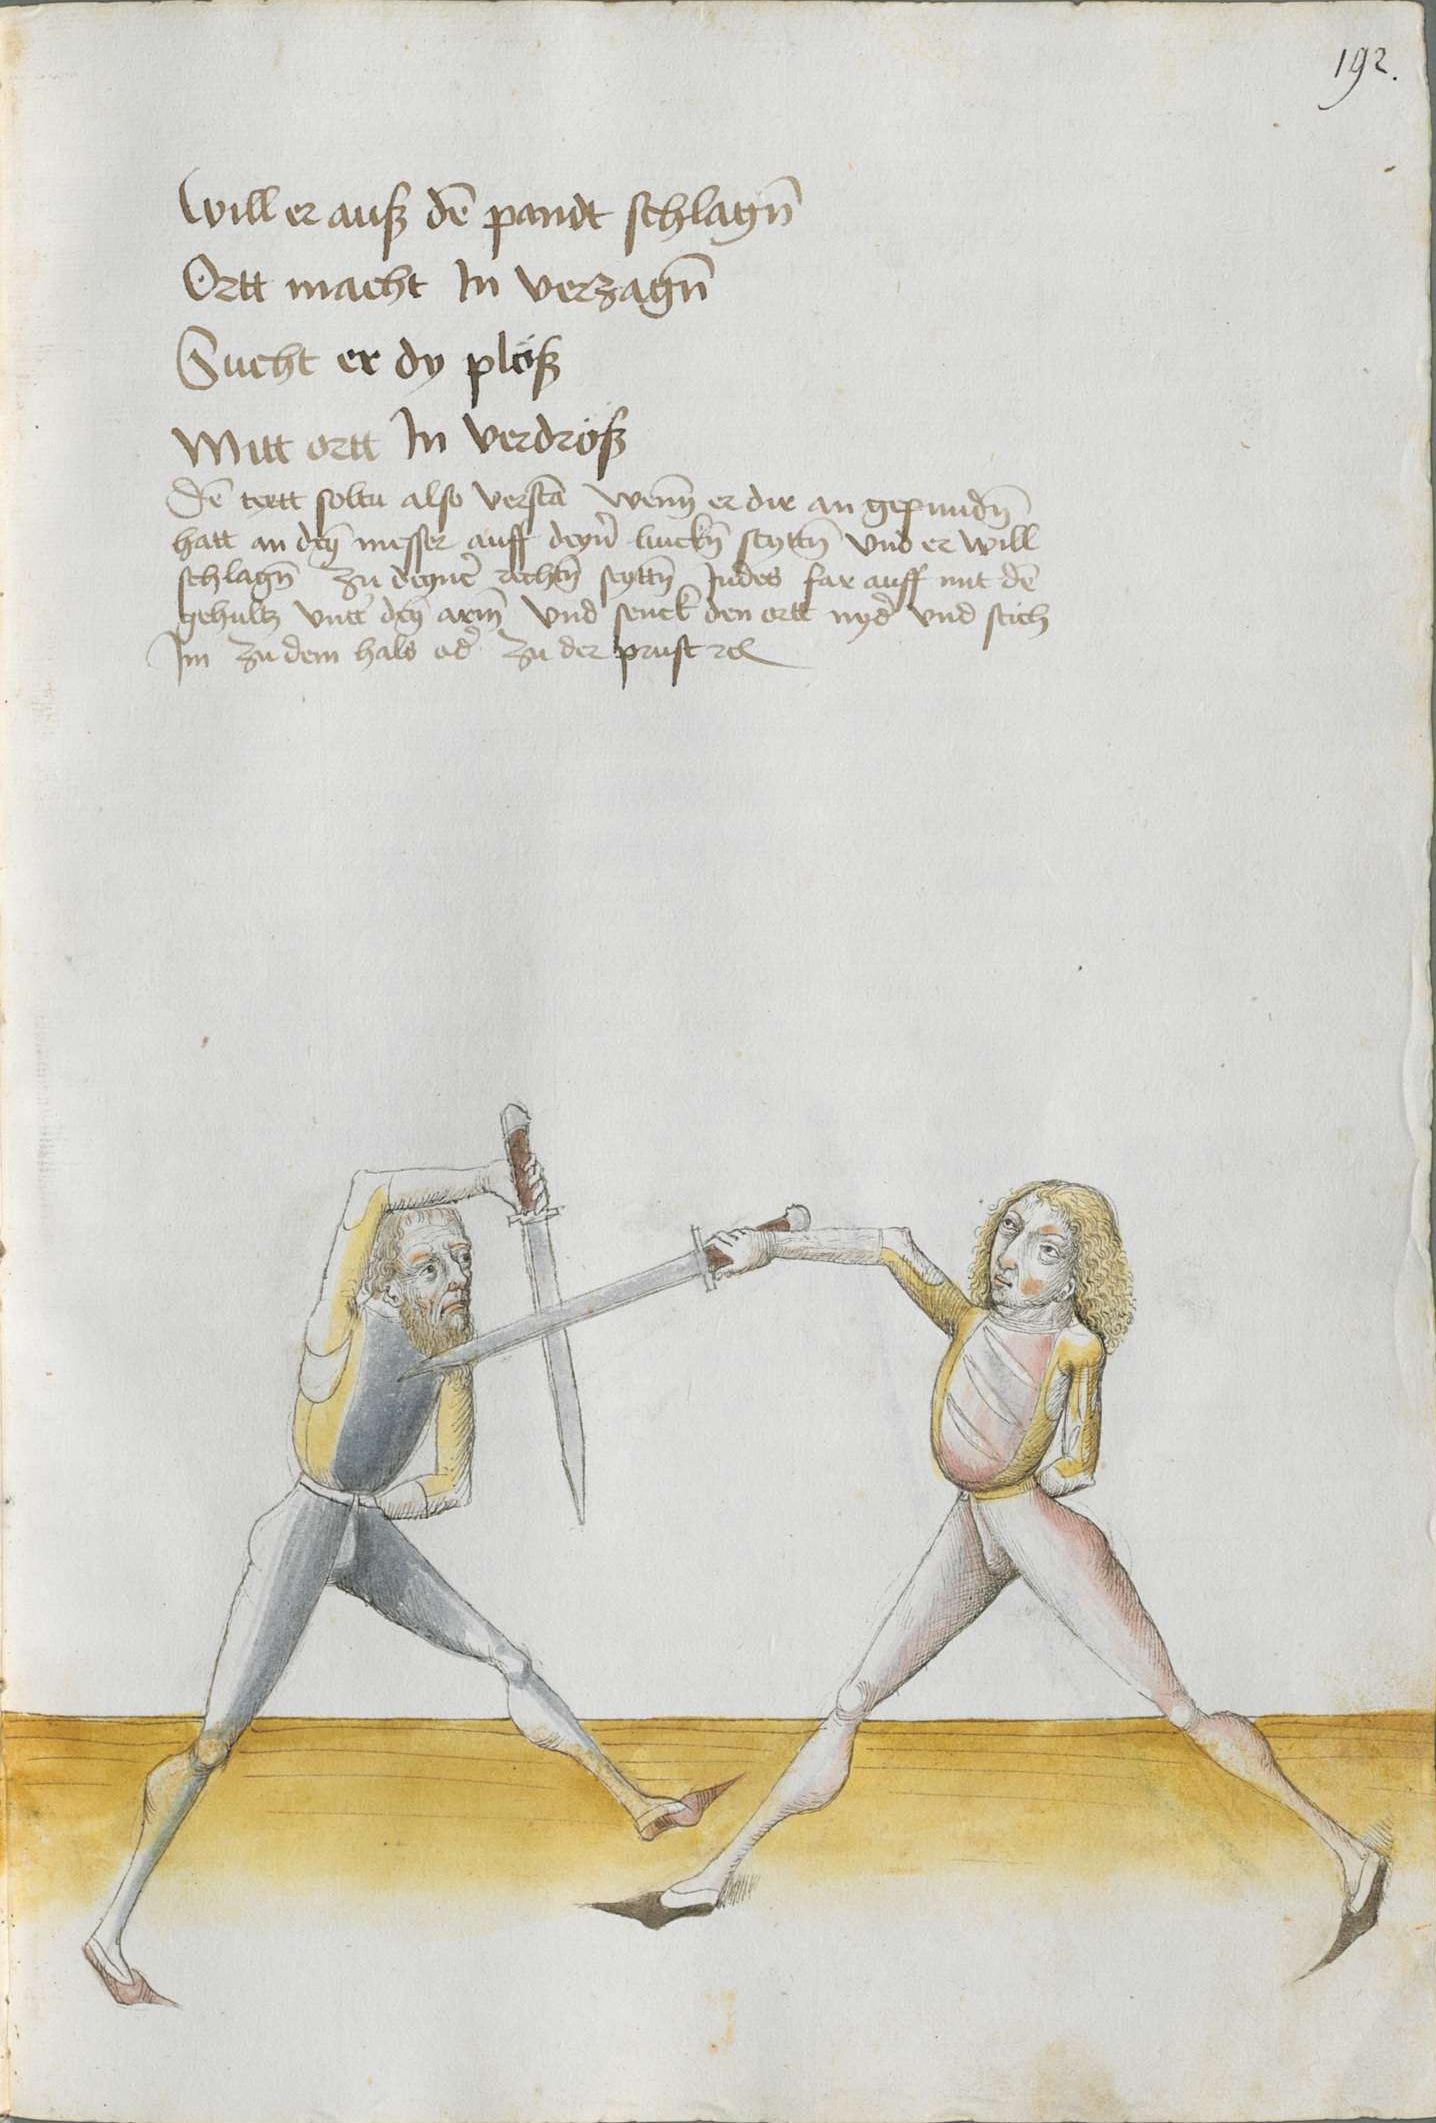 192.
Will er auß dē pandt schlagn̄
Ortt macht In verzagn̄
Sucht er dy plöß
Mitt ortt In verdröß
Dē textt soltu also verstā Wenn̄ er dir an gepundn̄
hatt an deȳ messer auff deyn̄ linckn̄ seyttn̄ Und er will
schlagn̄ zu deyner̄ rechtn̄ seyttn̄ Indes far auff mit dē
gehultz untt̄ deȳ arm̄ Und senck den ortt nyd̄ Und stich
Im zu dem hals od̄ zu der prust rc